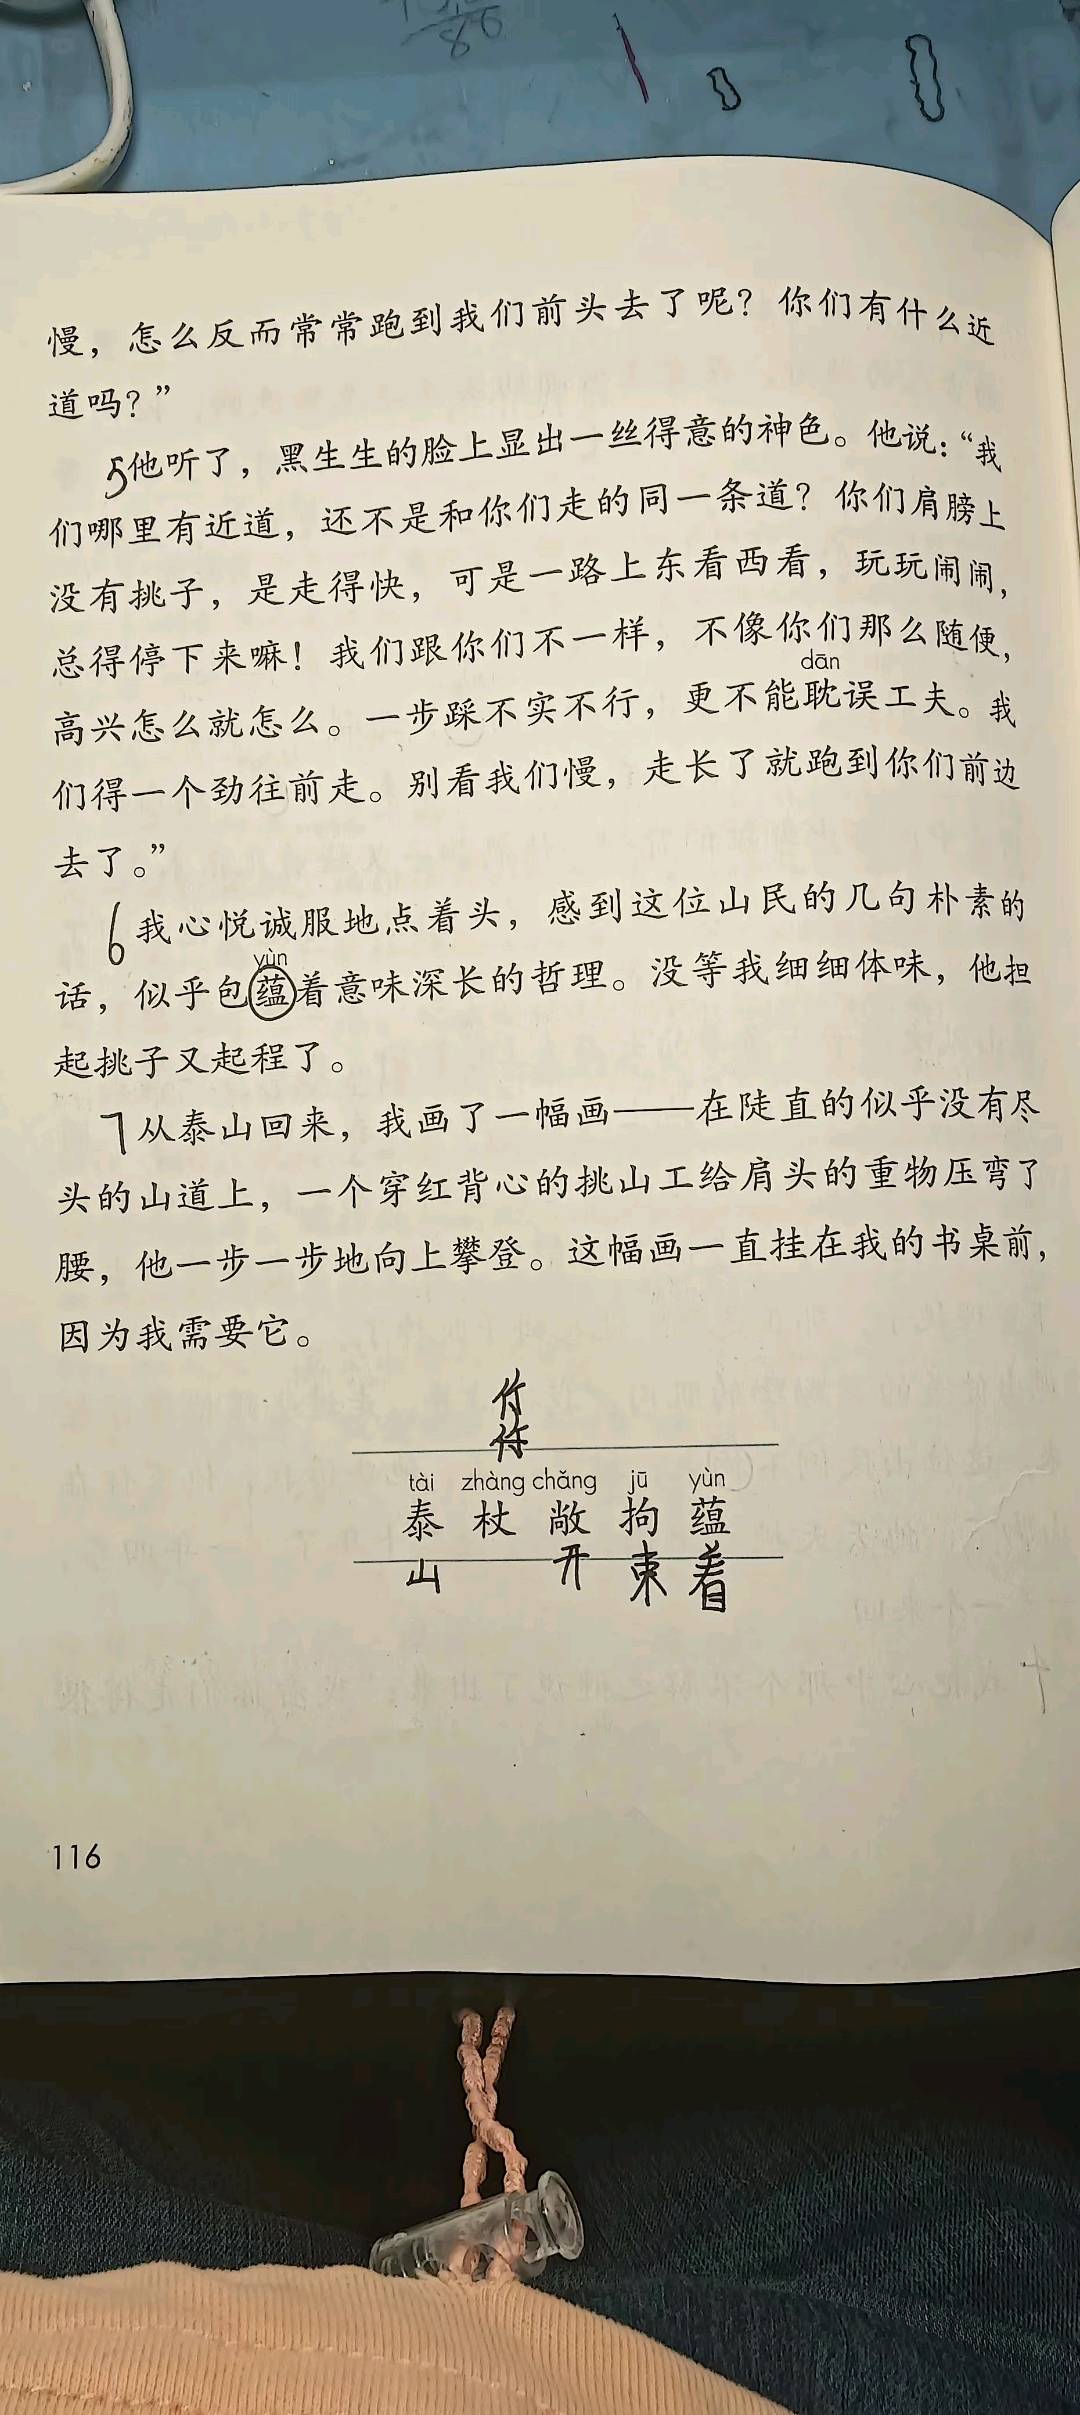 慢，怎么反而常常跑到我们前头去了呢？你们有什么近
道吗？”
5他听了，黑生生的脸上显出一丝得意的神色。他说：“我
们哪里有近道，还不是和你们走的同一条道？你们肩膀上
没有挑子，是走得快，可是一路上东看西看，玩玩闹闹，
总得停下来嘛！我们跟你们不一样，不像你们那么随便，
dān
高兴怎么就怎么。一步踩不实不行，更不能耽误工夫。我
们得一个劲往前走。别看我们慢，走长了就跑到你们前边
去了。”
6我心悦诚服地点着头，感到这位山民的几句朴素的
yùn
话，似乎包蕴着意味深长的哲理。没等我细细体味，他担
起挑子又起程了。
7从泰山回来，我画了一幅画——在陡直的似乎没有尽
头的山道上，一个穿红背心的挑山工给肩头的重物压弯了
腰，他一步一步地向上攀登。这幅画一直挂在我的书桌前，
因为我需要它。
竹
tài zhàng chǎng jū yùn
泰 杖 敞 拘 蕴
山 开 束 着
116